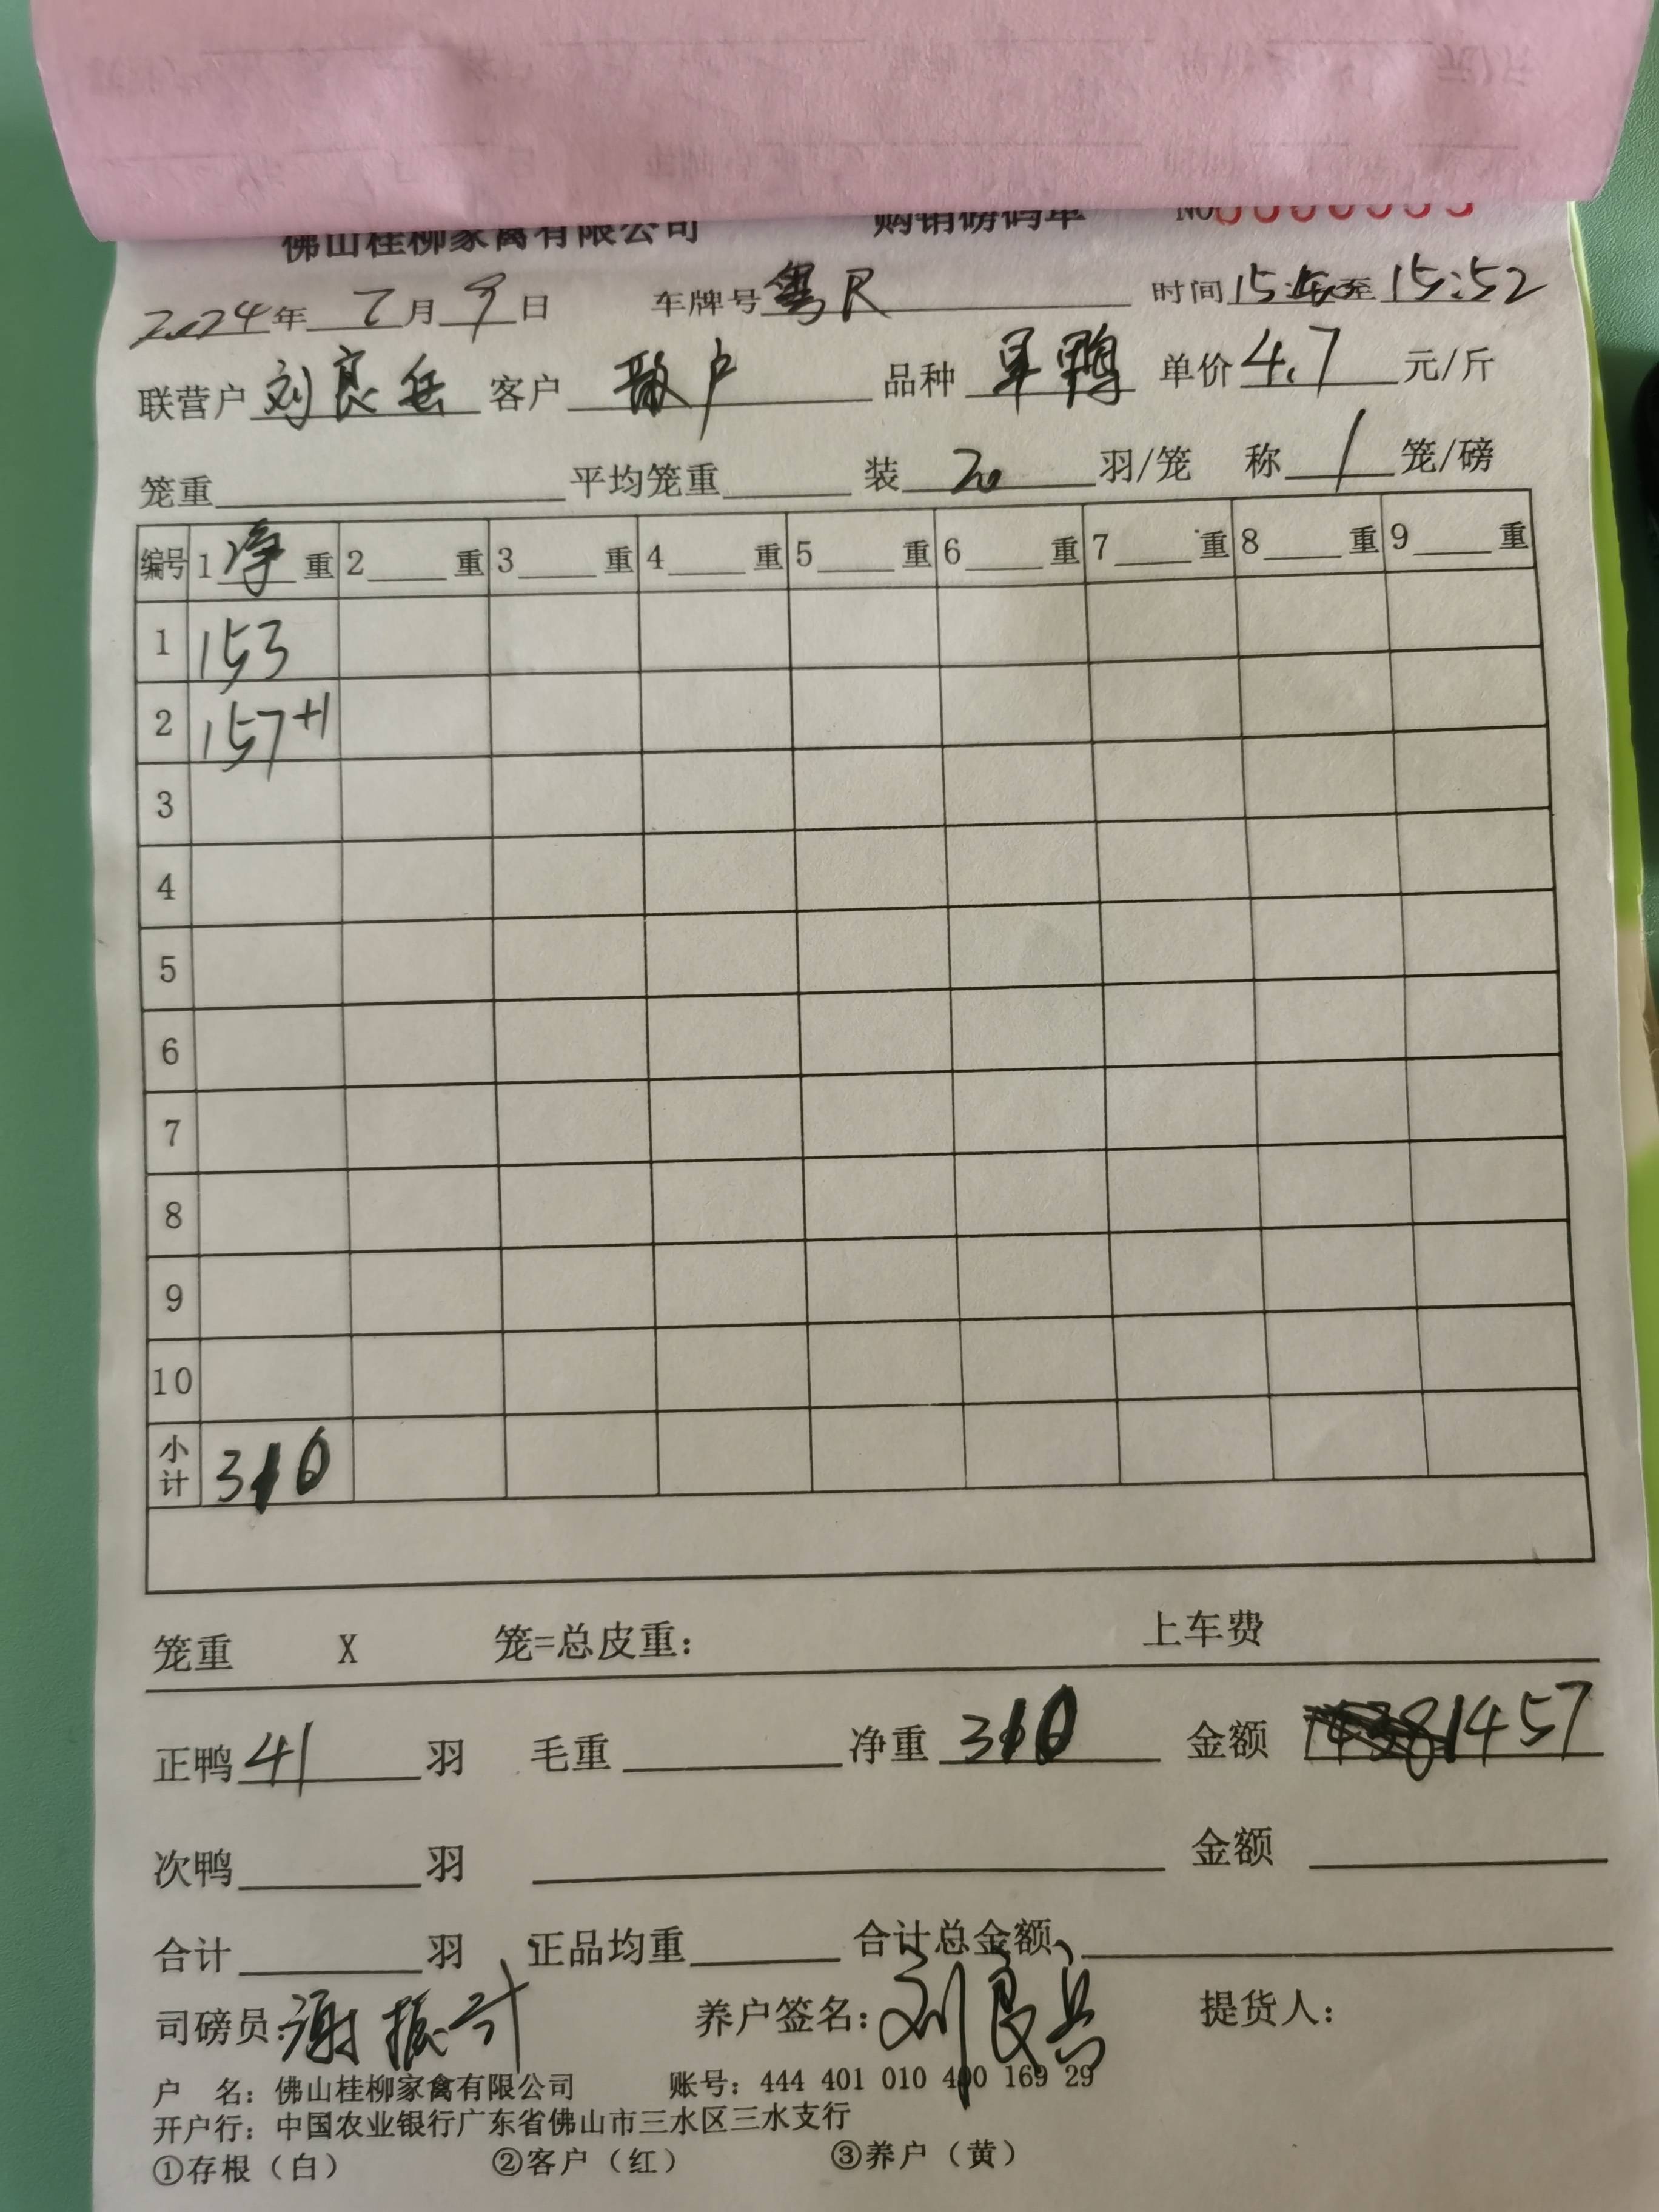 佛山桂柳家禽有限公司 购销磅码单 NO
2024年 7月 9日 车牌号 粤R 时间 15:40至15:52
联营户 刘良岳 客户 散户 品种 旱鸭 单价 4.7 元/斤
笼重 平均笼重 装 20 羽/笼 称 1 笼/磅
编号 1净重 2 重 3 重 4 重 5 重 6 重 7 重 8 重 9 重
1 153
2 157+1
3
4
5
6
7
8
9
10
小计 310
笼重 X 笼=总皮重: 上车费
正鸭 41 羽 毛重 净重 310 金额 1457
次鸭 羽 金额
合计 羽 正品均重 合计总金额
司磅员:谢振计 养户签名:刘良岳 提货人:
户 名: 佛山桂柳家禽有限公司 账号: 444 401 010 400 169 29
开户行: 中国农业银行广东省佛山市三水区三水支行
①存根（白） ②客户（红） ③养户（黄）